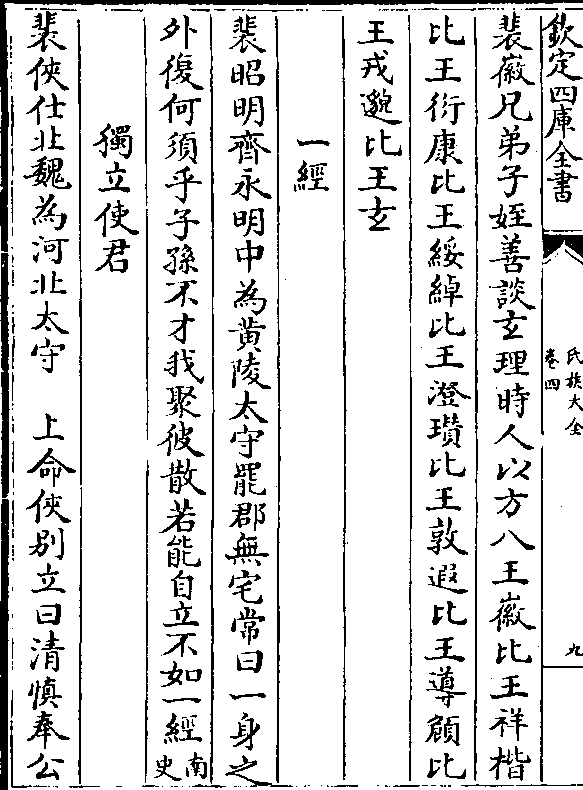 欽定四庫全書
氏族大全
卷四
九
裴徽兄弟子姪善談玄理時人以方八王徽比王祥楷
比王衍康比王綏綽比王澄瓚比王敦遐比王導頠比
王戎邈比王玄
一經
裴昭明齊永明中為黃陵太守罷郡無宅常曰一身之
外復何須乎子孫不才我聚彼散若能自立不如一經南史
獨立使君
裴俠仕北魏為河北太守 上命俠別立曰清慎奉公